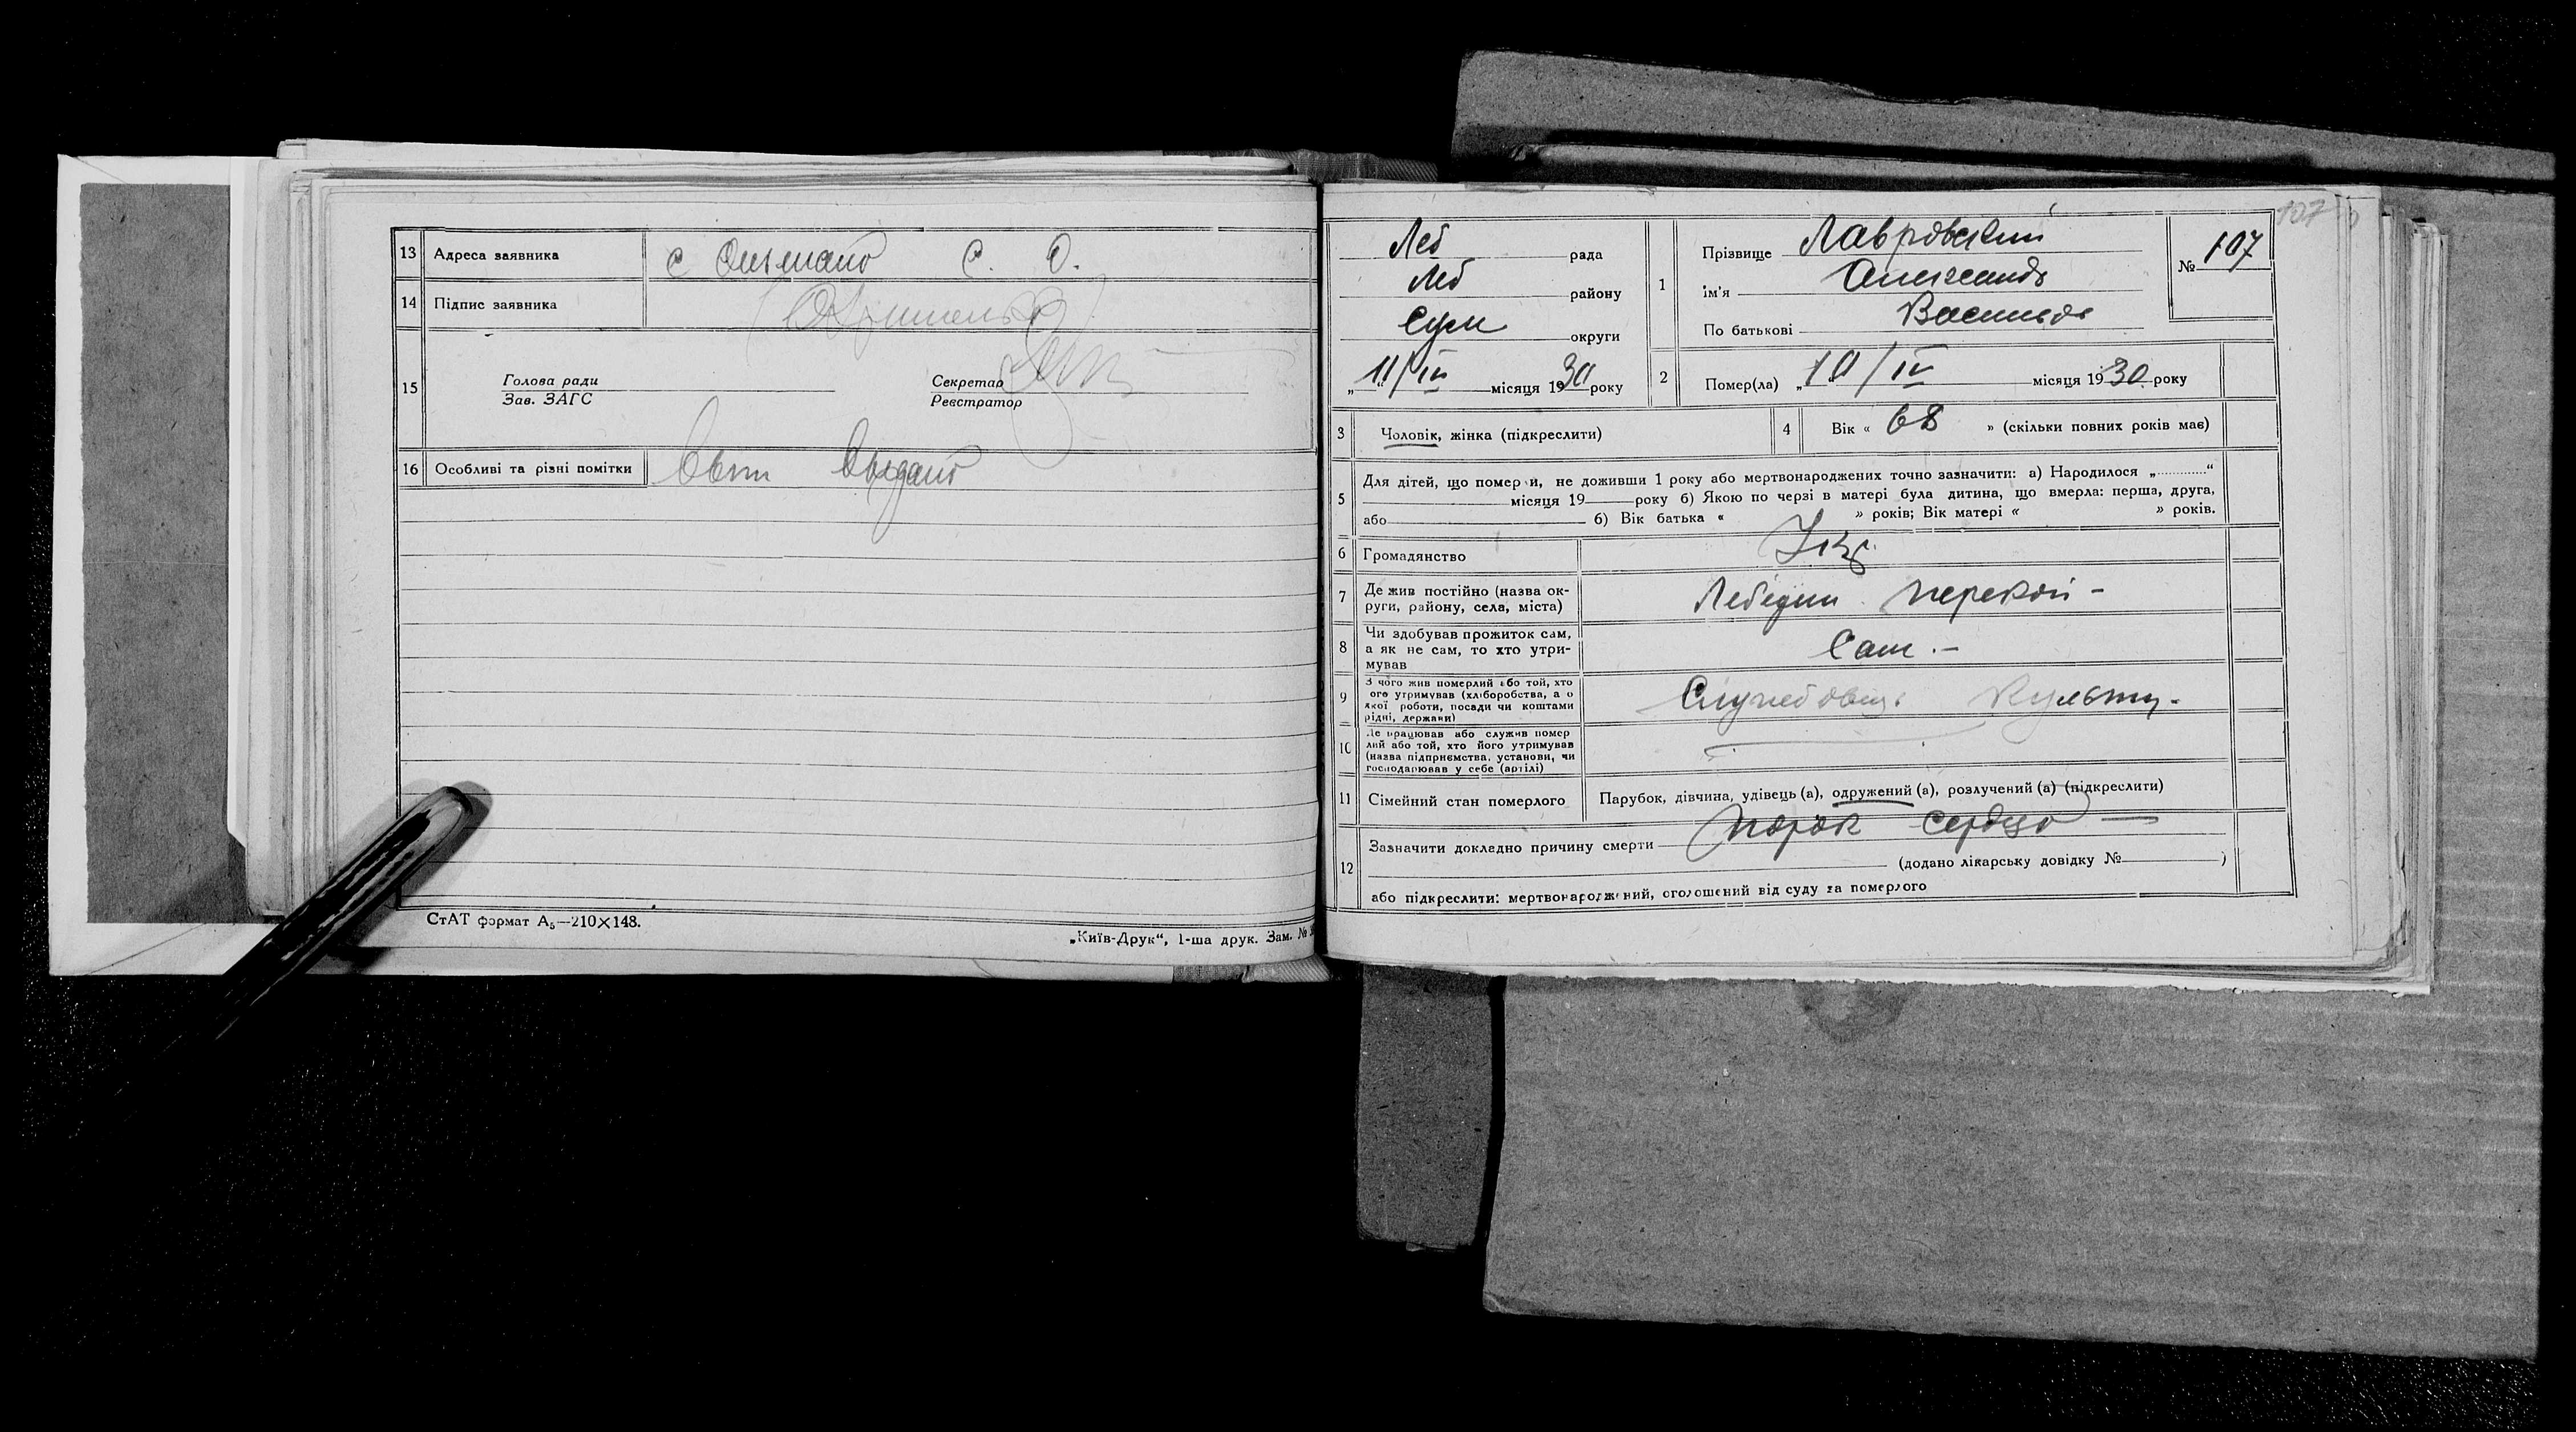 13 Адреса заявника с О. С. О.
14 Підпис заявника
15 Голова ради Секретар
Зав. ЗАГС Реєстратор
16 Особливі та різні помітки Выдано
СтАТ формат А₅—210×148.
„Київ-Друк“, 1-ша друк. Зам. №
107
Леб рада
Леб району
Сум округи
„11/IV місяця 1930 року
1 Прізвище Лавровский
ім'я Александр
По батькові Васильев
№ 107
2 Помер(ла) „10/IV місяця 1930 року
3 Чоловік, жінка (підкреслити)
4 Вік « 68 » (скільки повних років має)
5 Для дітей, що померли, не доживши 1 року або мертвонароджених точно зазначити: а) Народилося „ “
місяця 19 року б) Якою по черзі в матері була дитина, що вмерла: перша, друга,
або б) Вік батька « » років; Вік матері « » років.
6 Громадянство Укр.
7 Де жив постійно (назва ок-
руги, району, села, міста) Лебедин Перекоп –
8 Чи здобував прожиток сам,
а як не сам, то хто утри-
мував Сам. –
9 З чого жив померлий або той, хто
його утримував (хліборобства, а о
якої роботи, посади чи коштами
рідні, держави) Культу. –
10 Де працював або служив помер
лий або той, хто його утримував
(назва підприємства, установи, чи
господарював у себе (артілі)
11 Сімейний стан померлого Парубок, дівчина, удівець (а), одружений (а), розлучений (а) (підкреслити)
12 Зазначити докладно причину смерти Порок сердца –
(додано лікарську довідку № )
або підкреслити: мертвонароджений, оголошений від суду за померлого